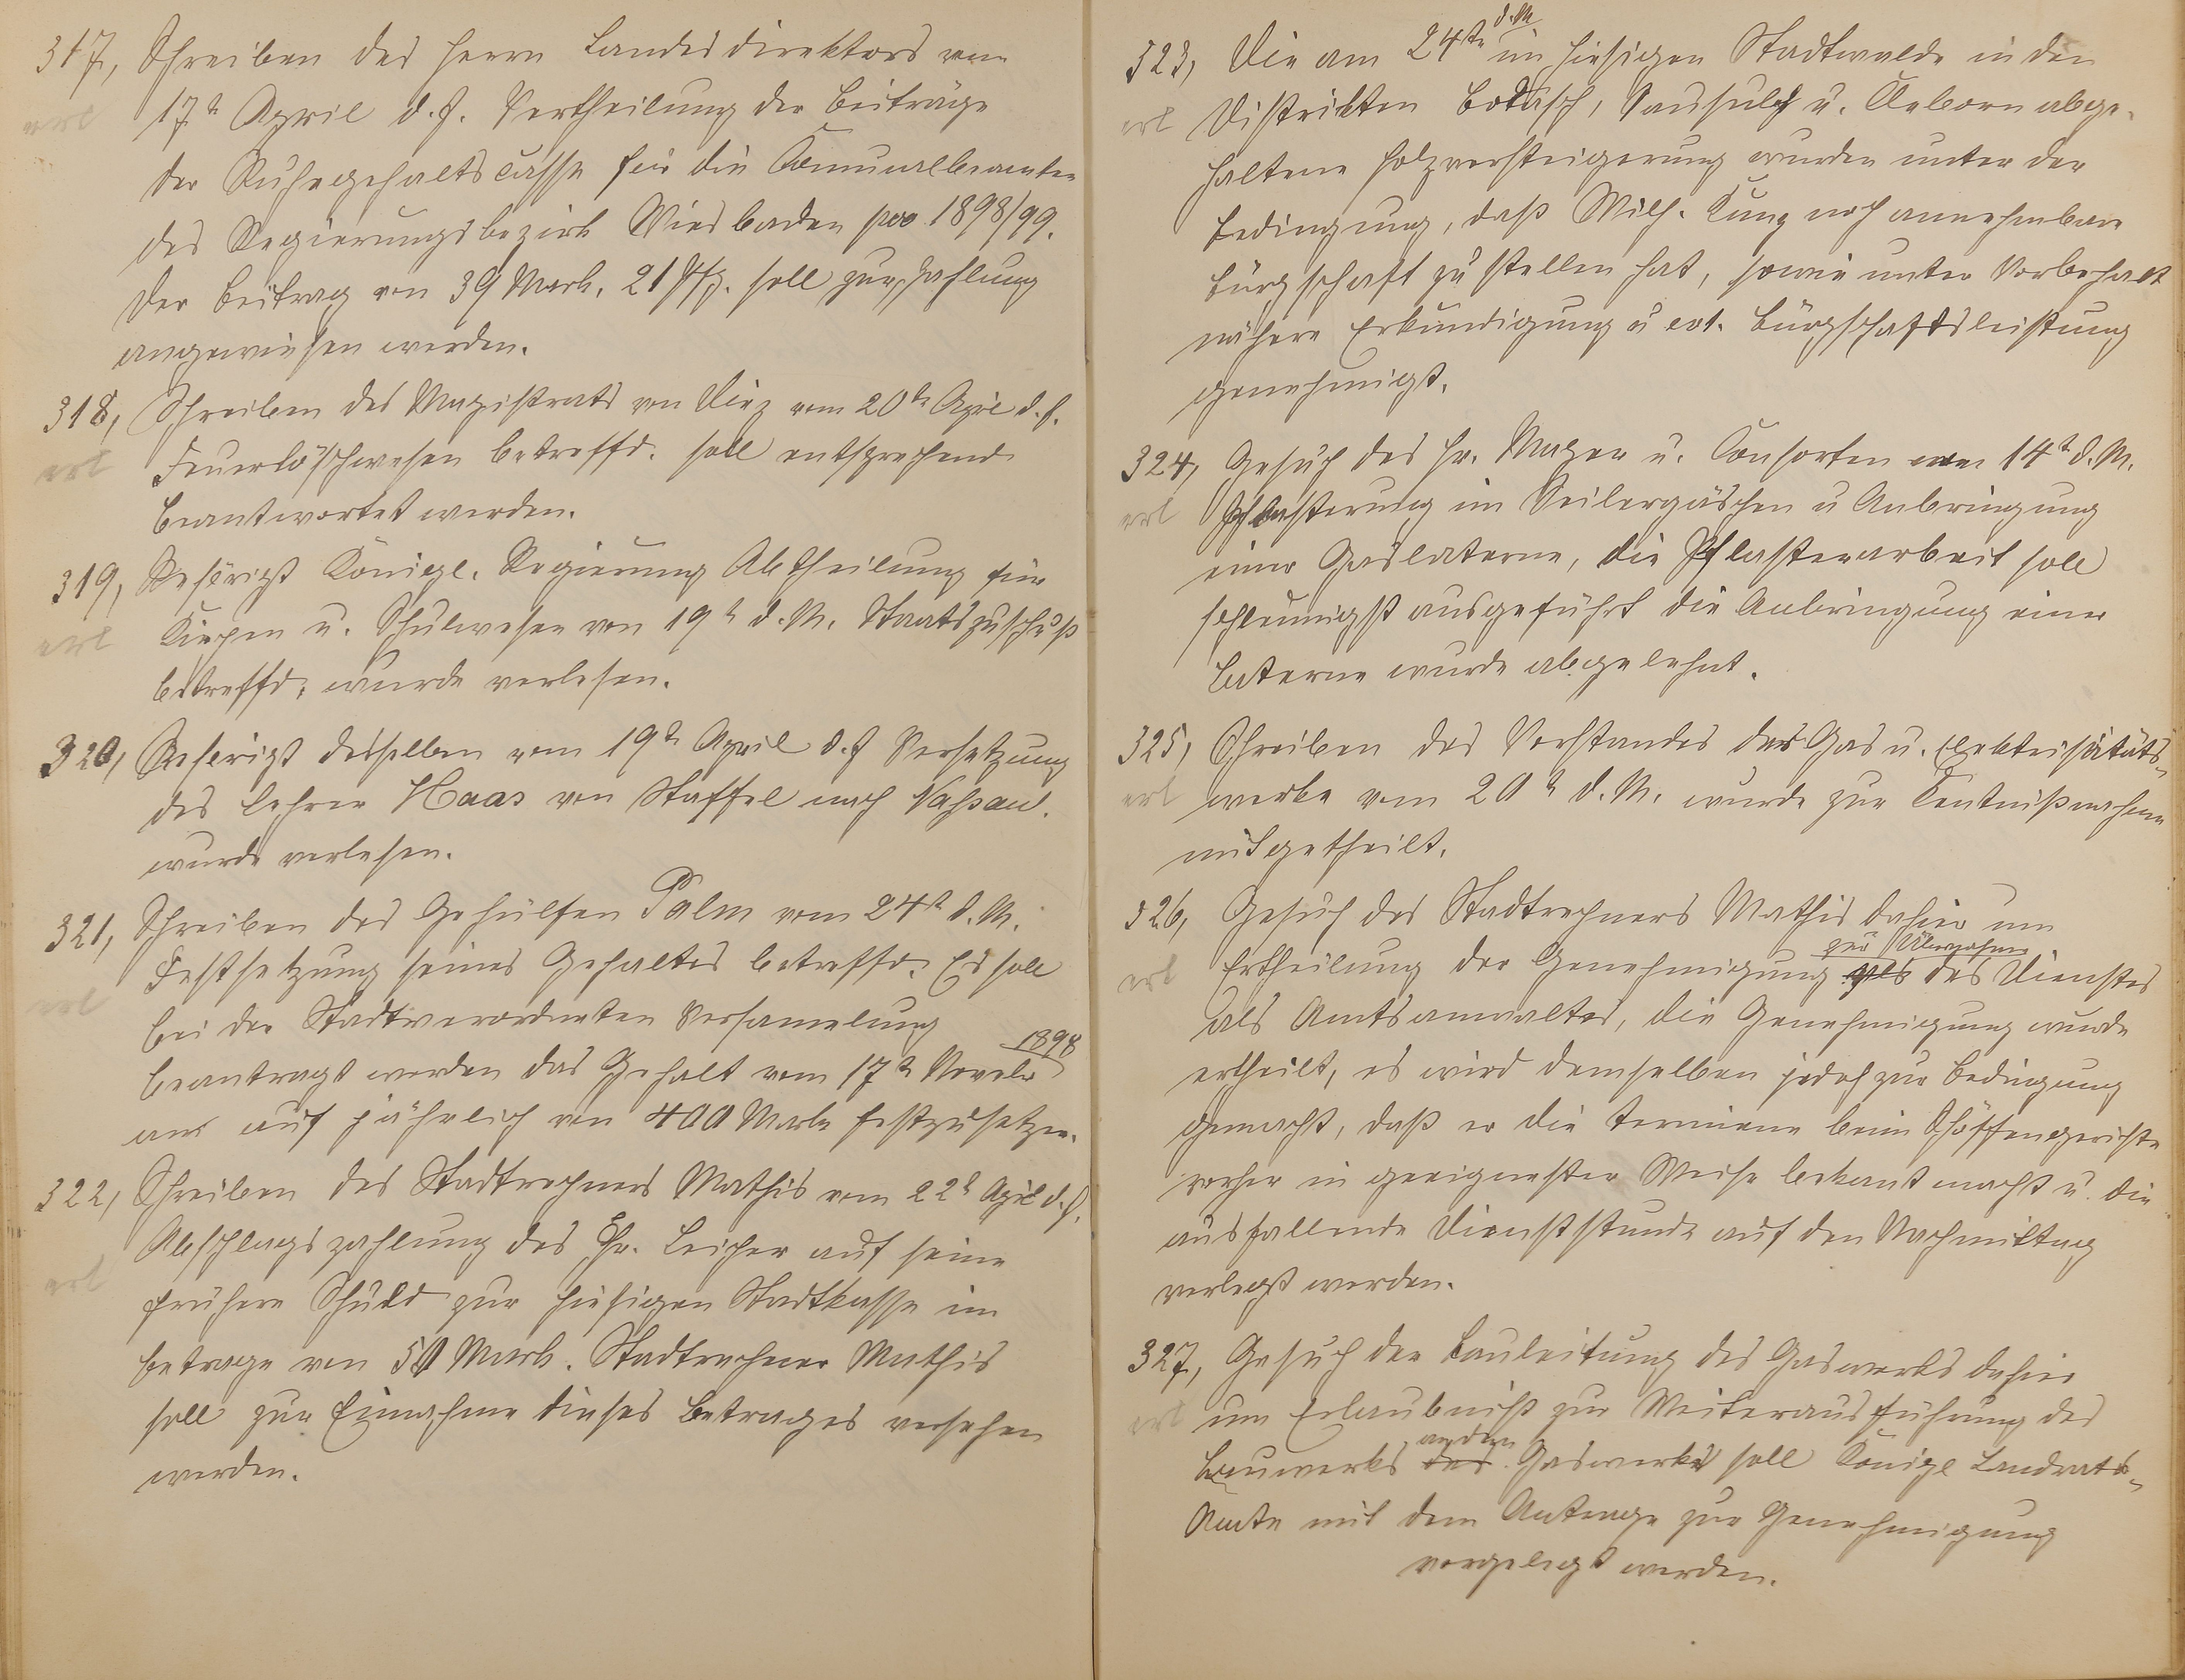 317, Schreiben des Herrn Landesdirektors vom
erl 17t April d. J. Vertheilung der Beiträge
der Ruhegehaltscasse für die Comunalbeamten
des Regierungsbezirk Wiesbaden pro 1898/99.
Der Beitrag von 39 Mark, 21 Pfg. soll zur Zahlung
angewiesen werden.
318, Schreiben des Magistrats von Diez vom 20tn April d. J.
erl Feuerlöschwesen betreffd. soll entsprechend
beantwortet werden.
319, Rescript Königl. Regierung Abtheilung für
erl Kirchen u. Schulwesen von 19t d. M. Staatszuschuß
betreffd, wurde verlesen.
320, Rescript desselben vom 19tn April d. J Versetzung
des Lehrer Haas von Staffel nach Naßau.
wurde verlesen.
321, Schreiben des Gehülfen Palm vom 24t d. M.
Festsetzung seines Gehaltes betreffd. Es soll
erl bei der Stadtverordneten Versamelung
beantragt werden das Gehalt vom 17t Novebr 1898
an auf jährlich von 400 Mark festzusetzen.
322, Schreiben des Stadtrechners Mathis vom 22t April d. J.
Abschlagszahlung des Hr. Leicher auf seine
erl frühere Schuld zur hiesigen Stadtkasse im
Betrage von 50 Mark. Stadtrechner Mathis
soll zur Einnahme dieses Betrages versehen
werden.
323, Die am 24tn d. M im hiesigen Stadtwalde in den
erl Distrikten u. abge-
haltene Holzversteigerung wurden unter der
Bedingung, daß Wilh. Kunz noch annehmbare
Bürgschaft zu stellen hat, sowie unter Vorbehalt
nähere Erkundigung u evt. Bürgschaftsleistung
genehmigt.
324, Gesuch des Hr. u. Consorten vom 14t d. M.
erl Pflasterung im Seilergäschen u Anbringung
einer Gaslaterne, die Pflasterarbeit soll
schleunigst ausgeführt die Anbringung einer
Laterne wurde abgelehnt.
325, Schreiben des Vorstandes des Gas u. Elektrisitäts-
erl werke vom 20t d. M. wurde zur Kentnißnahme
mitgetheilt.
326, Gesuch des Stadtrechners Mathis dahier um
erl Ertheilung der Genehmigung zur Übernahme des Dienstes
als Amtsanwaltes, die Genehmigung wurde
ertheilt, es wird demselben jedoch zur Bedingung
gemacht, daß er die Termiene beim Schöffengerichte
vorher in geeignester Weise bekant macht u. die
ausfallende Dienststunde auf den Nachmittag
verlegt werden.
327, Gesuch der Bauleitung des Gaswerks dahier
erl um Erlaubniß zur Weiterausführung des
Bauwerks an dem Gaswerke soll Königl Landrats-
Amte mit dem Antrage zur Genehmigung
vorgelegt werden.